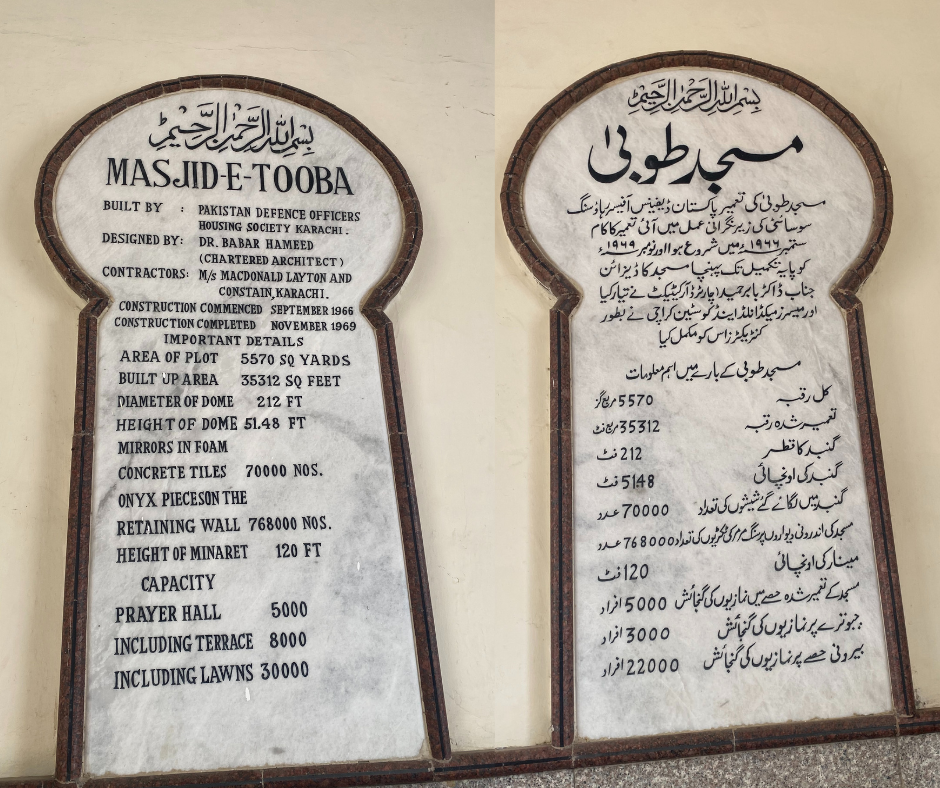 بسم الله الرحمن الرحيم
MASJID-E-TOOBA
BUILT BY : PAKISTAN DEFENCE OFFICERS
HOUSING SOCIETY KARACHI.
DESIGNED BY: DR. BABAR HAMEED
(CHARTERED ARCHITECT)
CONTRACTORS: M/s MACDONALD LAYTON AND
CONSTAIN, KARACHI.
CONSTRUCTION COMMENCED SEPTEMBER 1966
CONSTRUCTION COMPLETED NOVEMBER 1969
IMPORTANT DETAILS
AREA OF PLOT 5570 SQ YARDS
BUILT UP AREA 35312 SQ FEET
DIAMETER OF DOME 212 FT
HEIGHT OF DOME 51.48 FT
MIRRORS IN FOAM
CONCRETE TILES 70000 NOS.
ONYX PIECES ON THE
RETAINING WALL 768000 NOS.
HEIGHT OF MINARET 120 FT
CAPACITY
PRAYER HALL 5000
INCLUDING TERRACE 8000
INCLUDING LAWNS 30000
بسم الله الرحمن الرحيم
مسجد طوبیٰ
مسجد طوبیٰ کی تعمیر پاکستان ڈیفینس آفیسرز ہاؤسنگ
سوسائٹی کی زیر نگرانی عمل میں آئی تعمیر کا کام
ستمبر ۱۹۶۶ء میں شروع ہوا اور نومبر ۱۹۶۹ء
کو پایہ تکمیل تک پہنچا مسجد کا ڈیزائن
جناب ڈاکٹر بابر حمید (چارٹرڈ آرکیٹیکٹ نے تیار کیا
اور میسرز میکڈانلڈ اینڈ کوسٹین کراچی نے بطور
کنٹریکٹرز اس کو مکمل کیا
مسجد طوبیٰ کے بارے میں اہم معلومات
کل رقبہ 5570 مربع گز
تعمیر شدہ رقبہ 35312 مربع فٹ
گنبد کا قطر 212 فٹ
گنبد کی اونچائی 5148 فٹ
گنبد میں لگائے گئے شیشوں کی تعداد 70000 عدد
مسجد کی اندرونی دیواروں پر سنگ مرمر کی ٹکڑیوں کی تعداد 768000 عدد
مینار کی اونچائی 120 فٹ
مسجد کے تعمیر شدہ حصے میں نمازیوں کی گنجائش 5000 افراد
چبوترے پر نمازیوں کی گنجائش 3000 افراد
بیرونی حصے پر نمازیوں کی گنجائش 22000 افراد